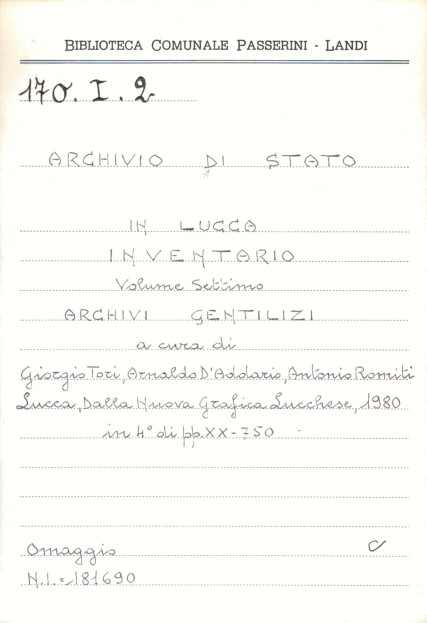 BIBLIOTECA COMUNALE PASSERINI - LANDI
170. I. 2
ARCHIVIO DI STATO
IN LUCCA
INVENTARIO
Volume Settimo
ARCHIVI GENTILIZI
a cura di
Giorgio Tori, Arnaldo D'Addario, Antonio Romiti
Lucca, Dalla Nuova Grafica Lucchese, 1980
in 4° di pp. XX-750
Omaggio C
N.I. = 181690